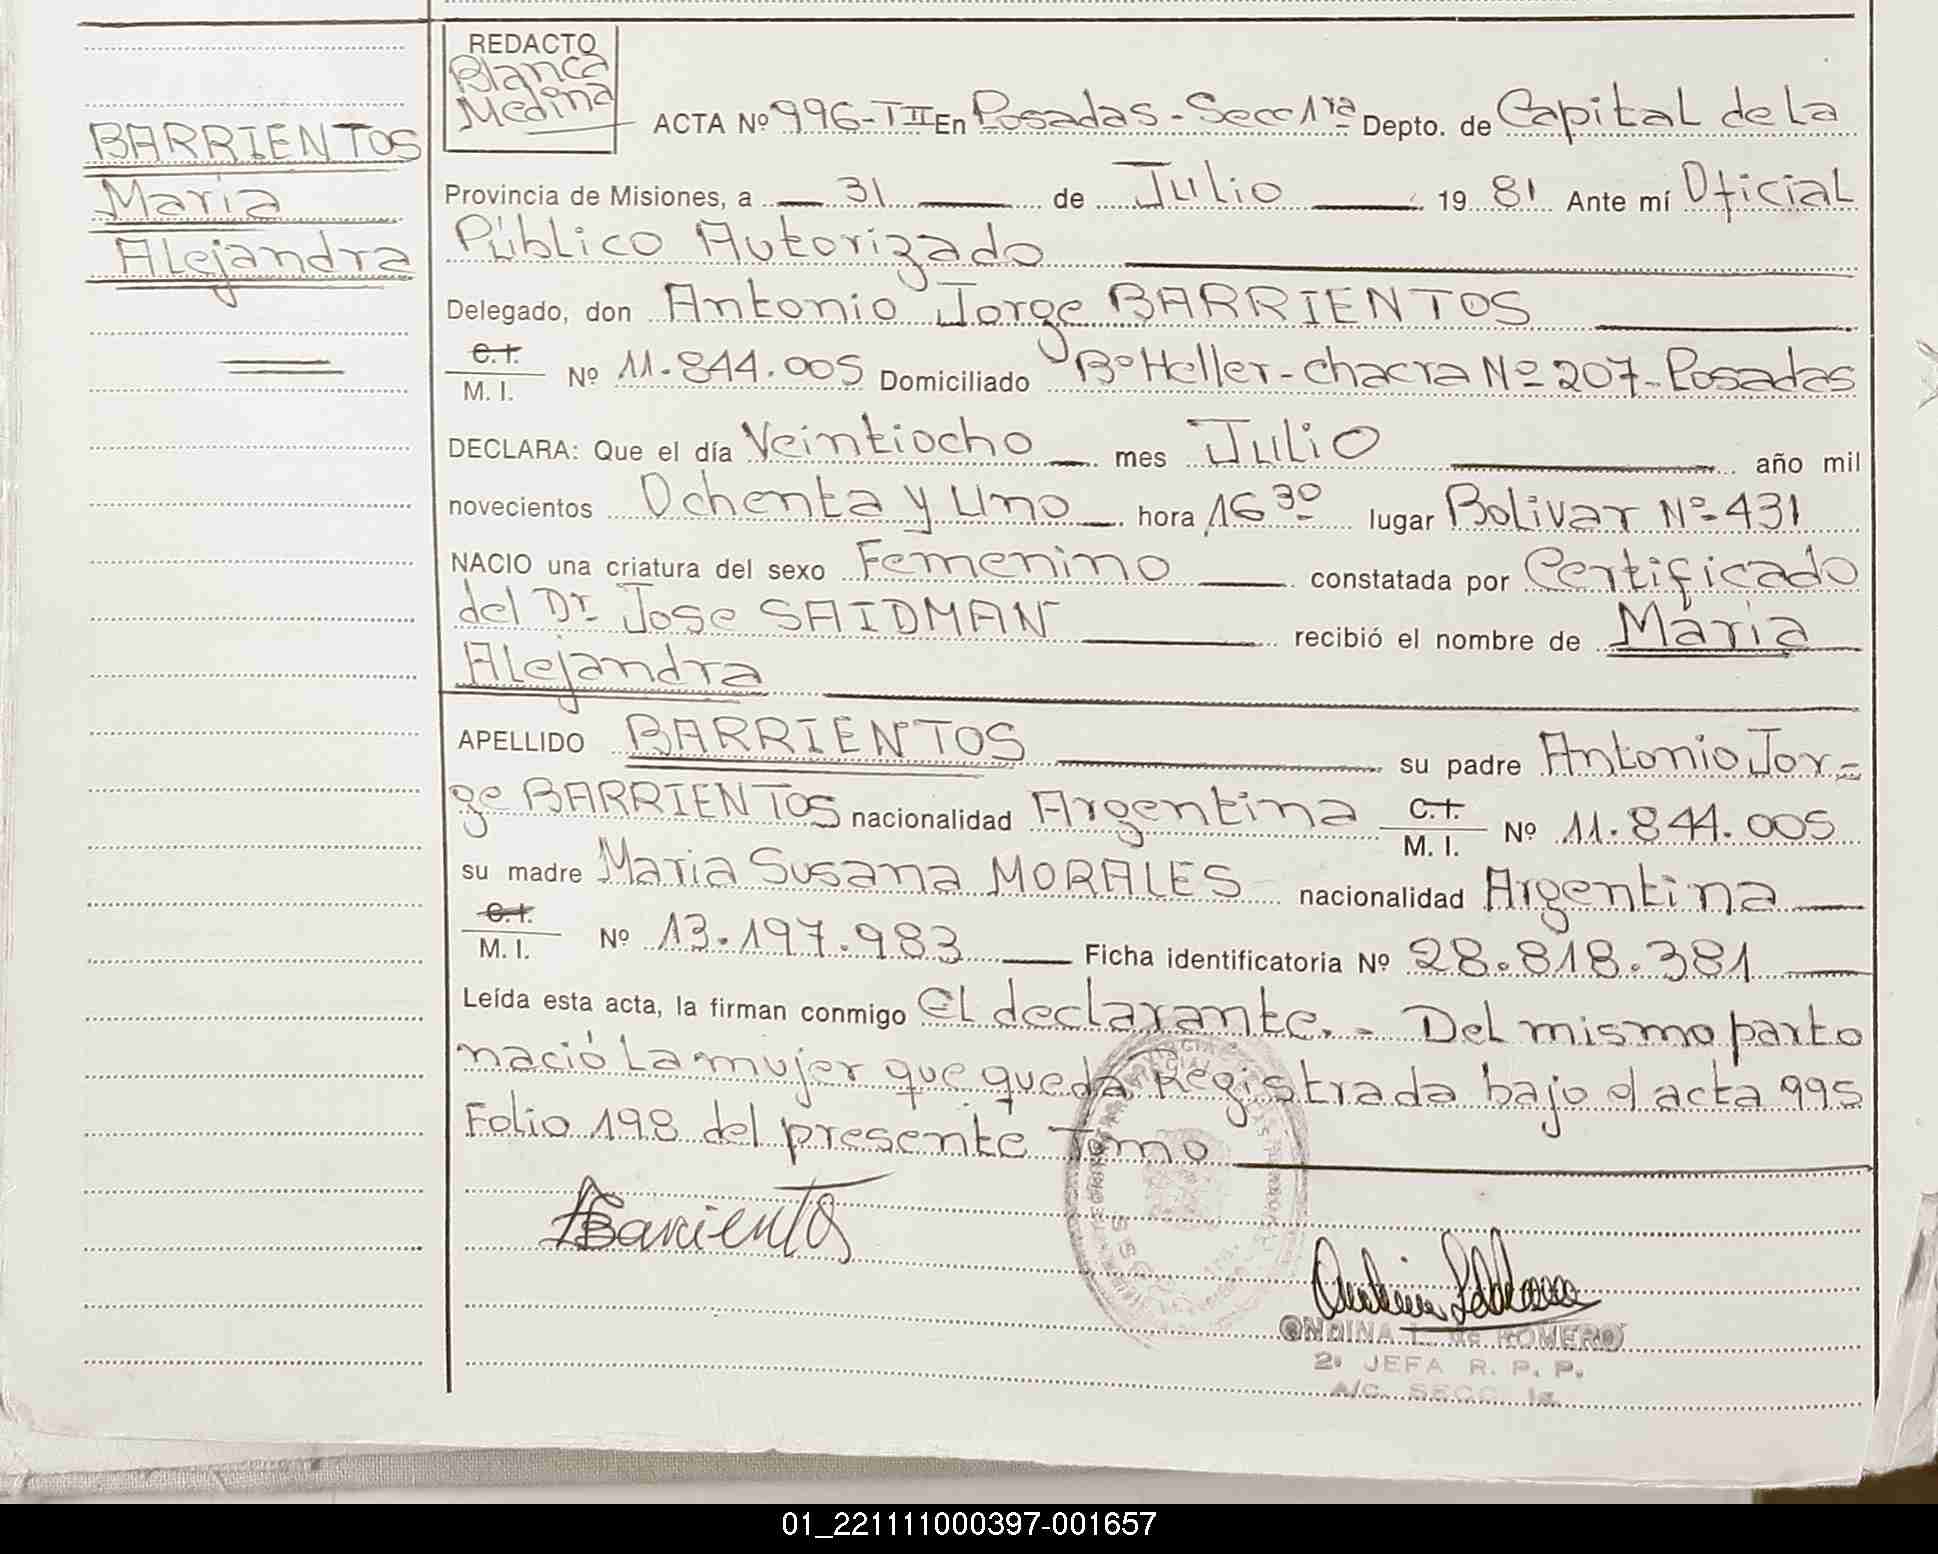 REDACTO
Blanca
Medina
BARRIENTOS
Maria
Alejandra
ACTA Nº 996-TII En Posadas-Secc 1ra Depto. de Capital de la
Provincia de Misiones, a 31 de Julio 19 81 Ante mí Oficial
Público Autorizado
Delegado, don Antonio Jorge BARRIENTOS
C.I. M. I. Nº 11.844.005 Domiciliado Bº Heller-chacra Nº 207-Posadas
DECLARA: Que el día Veintiocho mes Julio año mil
novecientos Ochenta y Uno hora 16 30 lugar Bolivar Nº 431
NACIO una criatura del sexo Femenino constatada por Certificado
del Dr. Jose SAIDMAN recibió el nombre de Maria
Alejandra
APELLIDO BARRIENTOS su padre Antonio Jor-
ge BARRIENTOS nacionalidad Argentina C.I. M. I. Nº 11.844.005
su madre Maria Susana MORALES nacionalidad Argentina
C.I. M. I. Nº 13.197.983 Ficha identificatoria Nº 28.818.381
Leída esta acta, la firman conmigo El declarante.- Del mismo parto
nació La mujer que queda Registrada bajo el acta 995
Folio 198 del presente Tomo
ABarrientos
ONDINA L. de ROMERO
2ª JEFA R. P. P.
A/C. SECC. 1a.
01_221111000397-001657